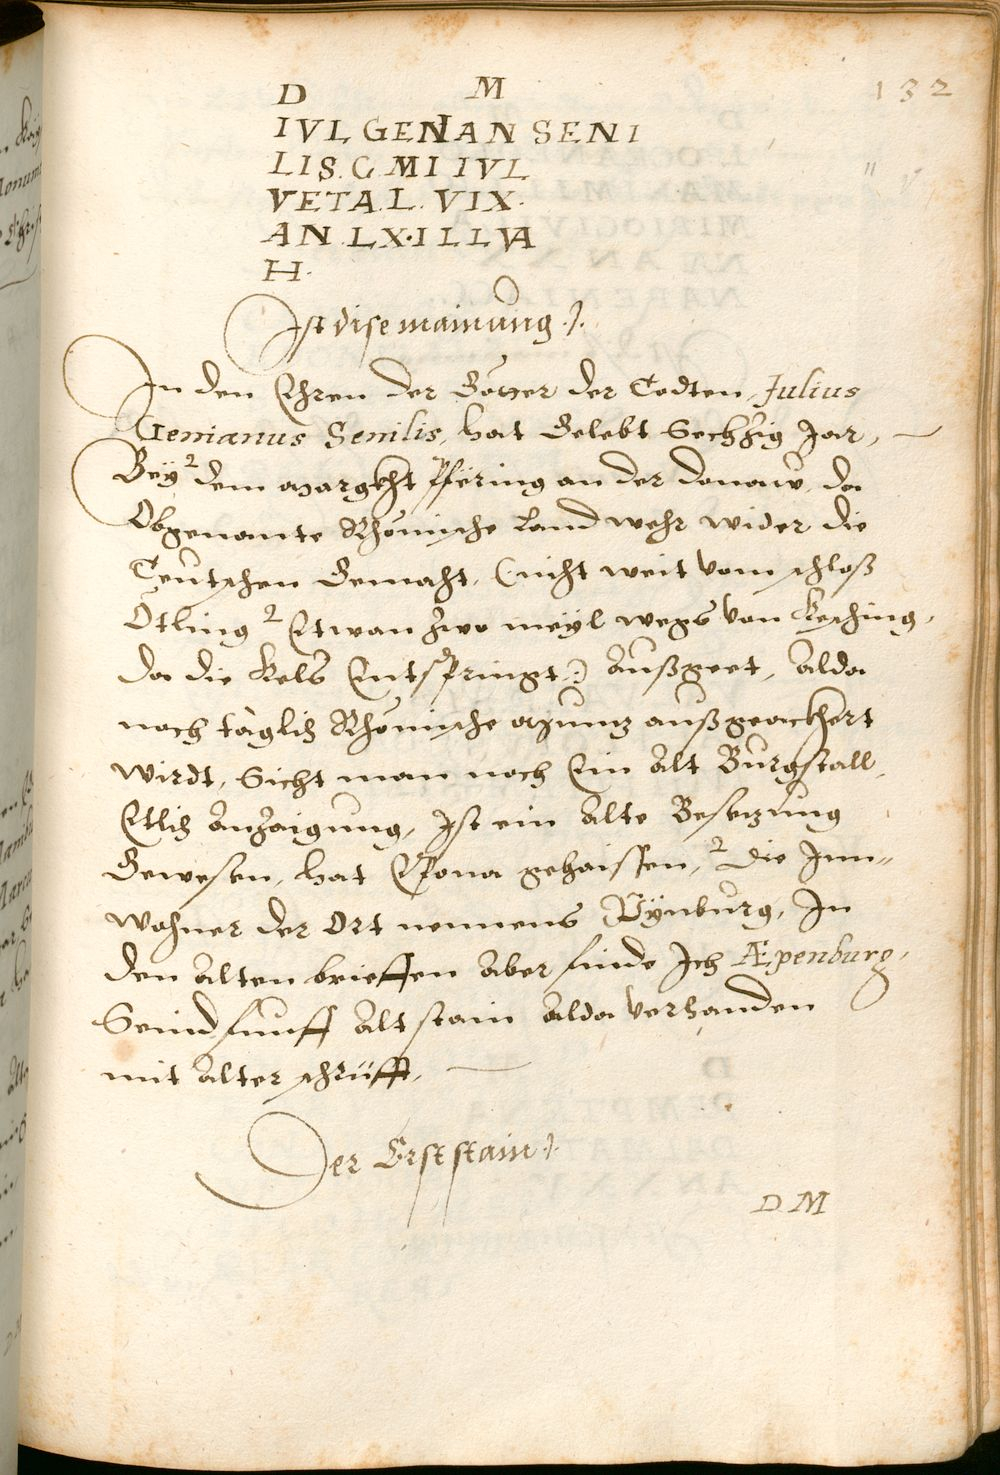 132
D M
IVL GENIAN SENI
LIS. C. MI IVL
VETA.L. VIX.
AN. LX. ILLVA
H.
Ist dise mainung.
In den Ehren der Götter der Todten, Julius
Genianus Senilis, hat Gelebt Sechzig Jar,
Bey dem Margkht Pfëring an der Donaw, da
Obgenante Rhömische Landwehr wider die
Teutschen Gemacht, (nicht weit vom schloß
Otling Etwan zwo meyl wegs von Kesching,
da die Kels Entspringt) Außgeet, Alda
noch täglich Rhömische Münz außgeackhert
wirdt, Sicht man noch Ein Alt Burgstall,
Etlich Anzaigung, Ist ein Alte Besetzung
Gewesen, hat Epona gehaissen, die Inn=
wohner der Ort nennens Pÿnburg, In
den Alten brieffen Aber finde Ich Æpenburg,
Seind funff Alt stain Alda verhanden
mit Alter schrüfft,
Der Erst stain
D M